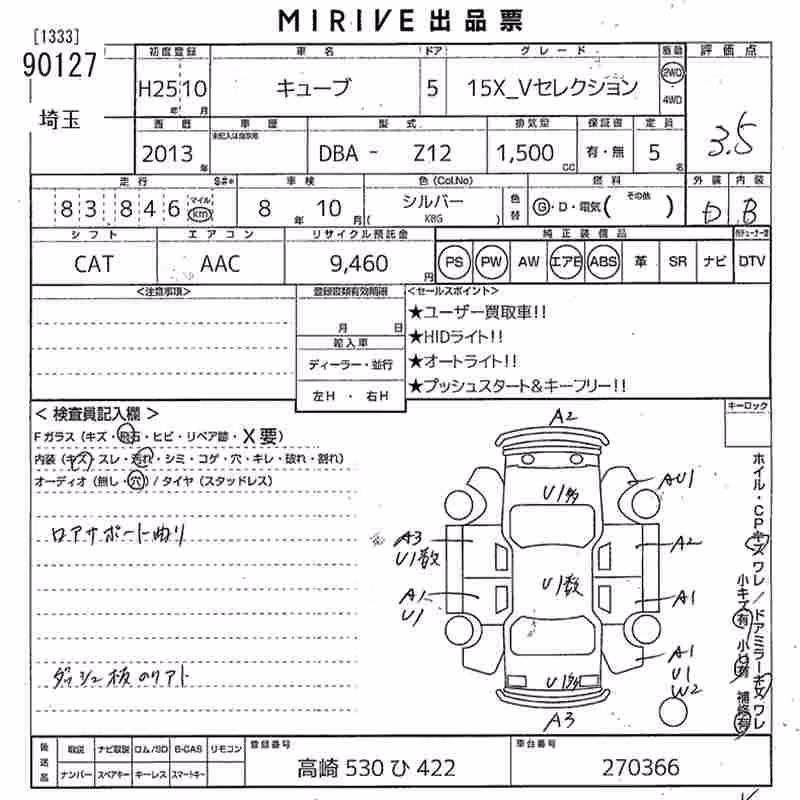 MIRIVE 出品票
[1333]
90127
埼玉
初度登録 車名 ドア グレード 駆動 評価点
H25 10 キューブ 5 15X_Vセレクション 2WD
年 月 4WD
3.5
西暦 車歴 型式 排気量 保証書 定員
未記入は自家用
2013 年 DBA - Z12 1,500 CC 有・無 5 名
走行 $#* 車検 色(Col.No) 燃料 外装 内装
83,846 マイル km 8 年 10 月 シルバー 色替 G・D・電気( その他 ) D B
( KBG )
シフト エアコン リサイクル預託金 純正装備品
CAT AAC 9,460 円 PS PW AW エアB ABS 革 SR ナビ DTV
<注意事項> 登録書類有効期限 <セールスポイント>
月 日
★ユーザー買取車!!
輸入車
★HIDライト!!
ディーラー・並行
★オートライト!!
左H ・ 右H
★プッシュスタート&キーフリー!!
キーロック
< 検査員記入欄 >
Fガラス(キズ・飛石・ヒビ・リペア跡・X要)
内装(キズ・スレ・汚れ・シミ・コゲ・穴・キレ・破れ・割れ)
オーディオ(無し・穴)/タイヤ(スタッドレス)
ロアサポート曲り
ダッシュ板のリアト
A2
U1
AU1
A3
U1数
A2
U1数
A1
U1
A1
A1
U1
W2
U1
A3
ホイル・CPキズ ワレ/ドアミラーキズ ワレ
小キズ有 小凹有 補修有
後送品 取説 ナビ取説 ロム/SD B-CAS リモコン 登録番号 車台番号
ナンバー スペアキー キーレス スマートキー 高崎 530 ひ 422 270366